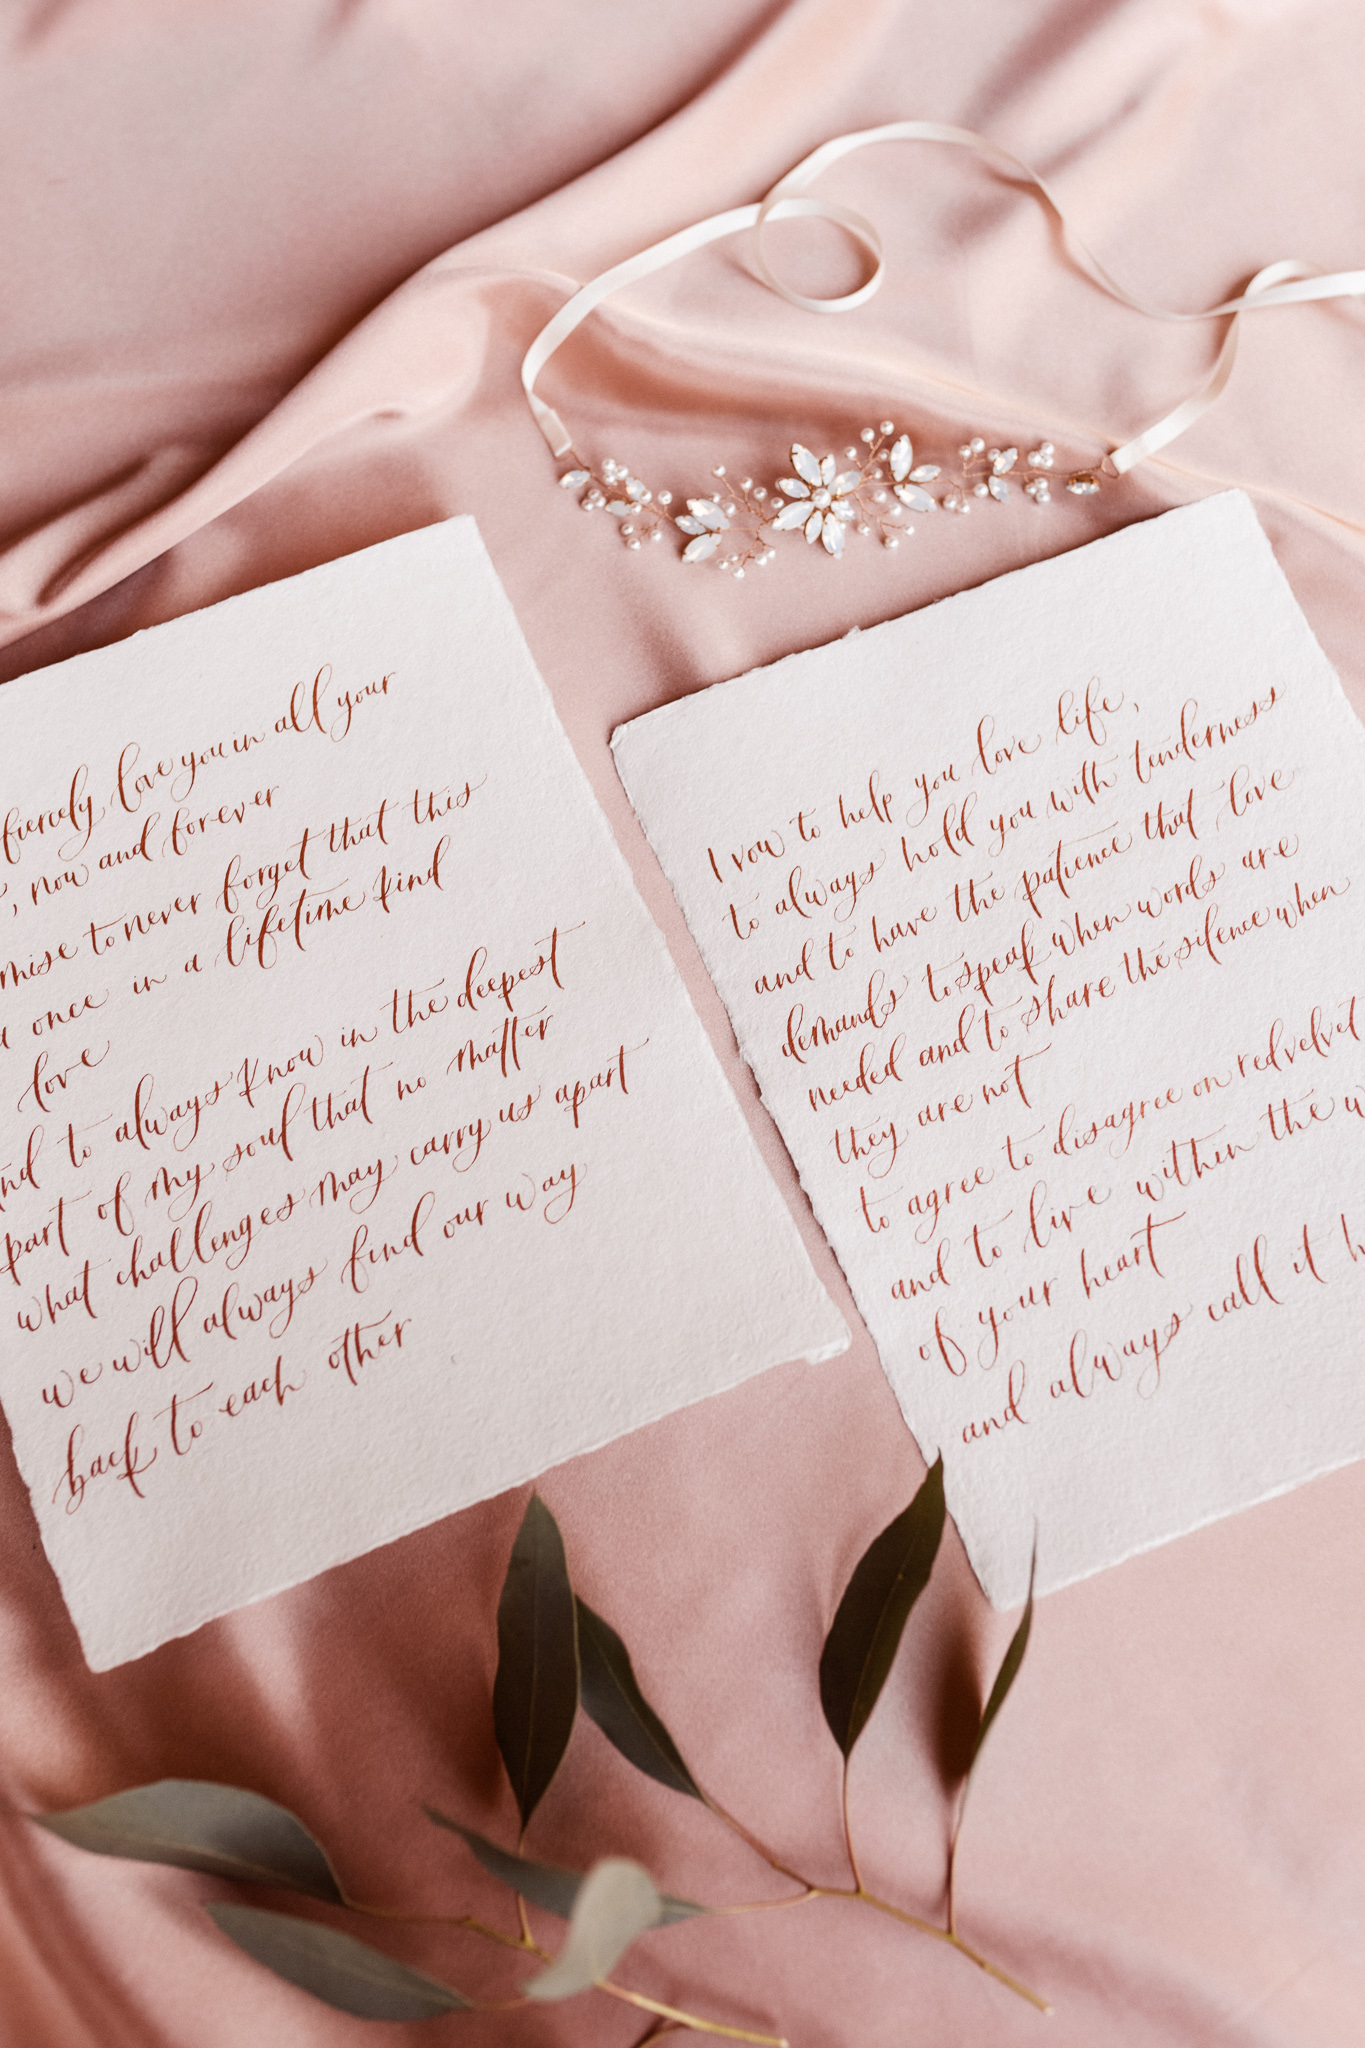 fiercely love you in all your
, now and forever
mise to never forget that this
a once in a lifetime kind
love
nd to always know in the deepest
part of my soul that no matter
what challenges may carry us apart
we will always find our way
back to each other
I vow to help you love life,
to always hold you with tenderness
and to have the patience that love
demands to speak when words are
needed and to share the silence when
they are not
to agree to disagree on red velvet
and to live within the w
of your heart
and always call it h